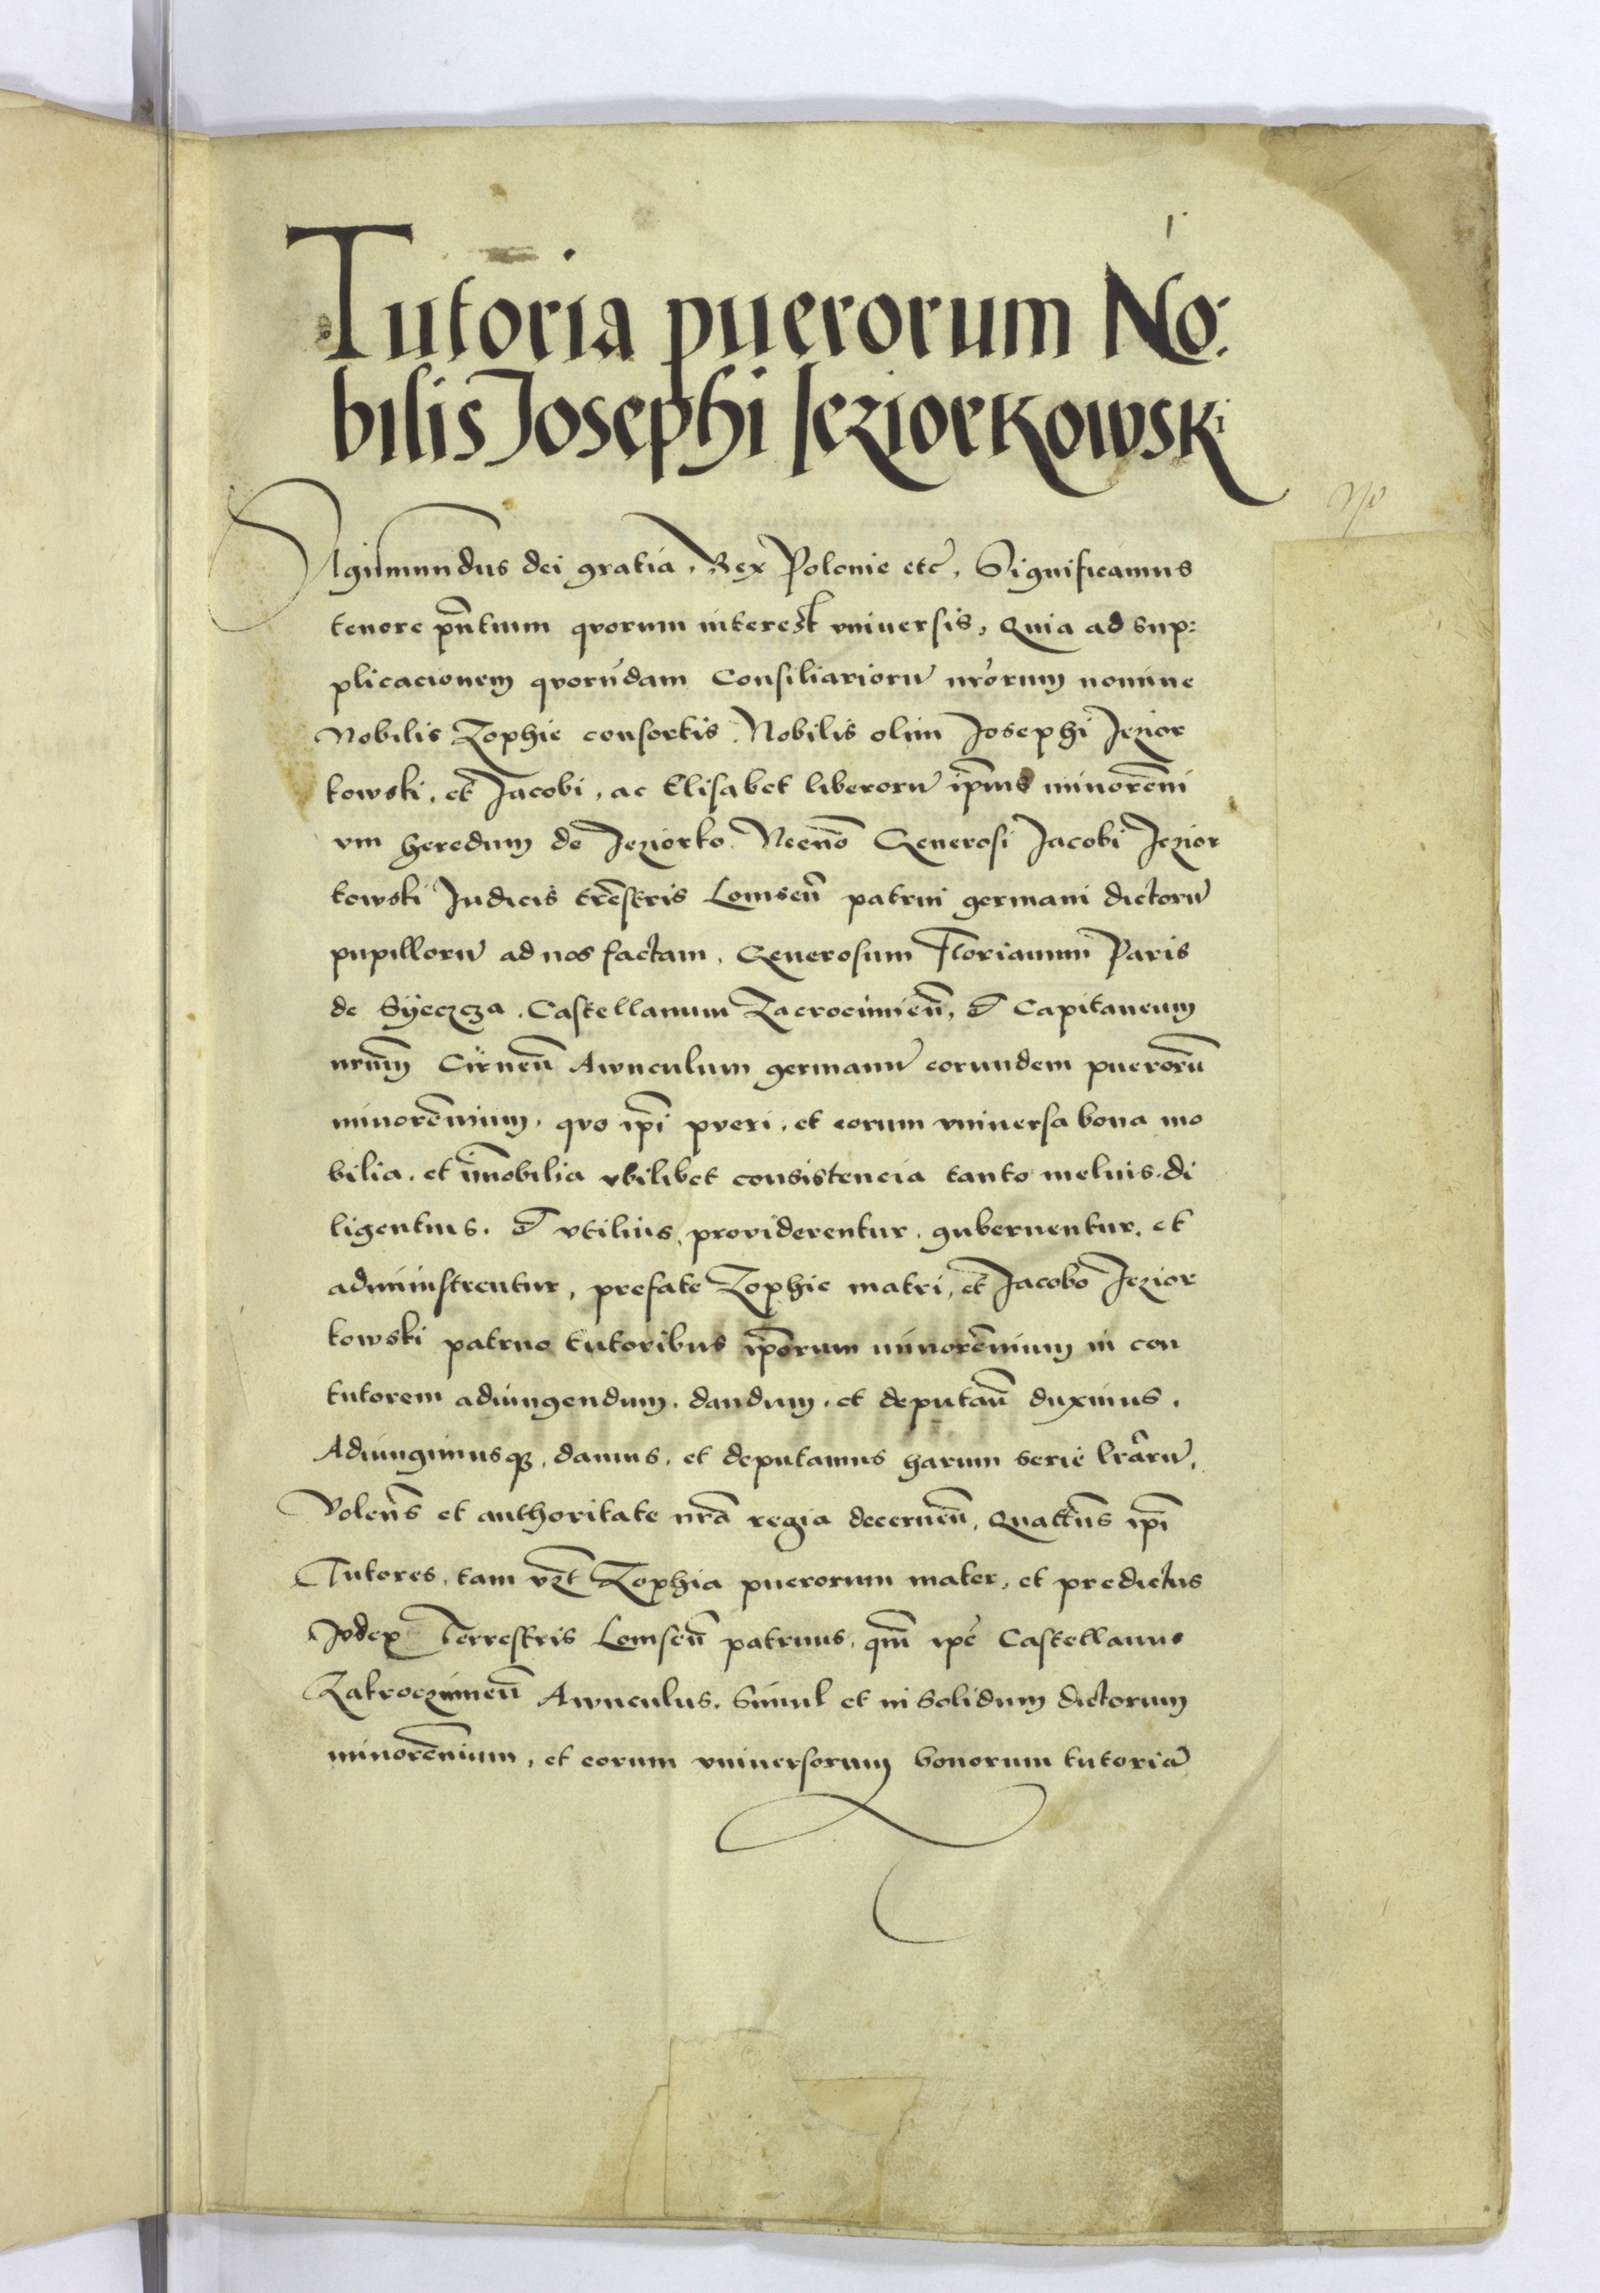 1
Tutoria puerorum No:
bilis Josephi Ieziorkowski
Sigismundus dei gratia, Rex Polonie etc̃, Significamus
tenore pñtium qvorum interest vniversis, Quia ad sup:
plicacionem qvorūdam Consiliariorũ nr̃orum nomine
Nobilis Zophie consortis Nobilis olim Josephi Jezior
kowski, et Jacobi, ac Elisabet liberorũ ip̃ius minorenni
vm heredum de Jeziorko Necnõ Generosi Jacobi Jezior
kowski Judicis trẽstris Lomseñ patrui germani dictorũ
pupillorũ ad nos factam, Generosum Florianum Paris
de Syeczcza, Castellanum Zacrocimieñ, et Capitaneum
nrũm Cirneñ Awnculum germanũ eorundem puerorũ
minorẽnium, qvo ip̃i pveri, et eorum vniversa bona mo
bilia, et im̃obilia vbilibet consistencia tanto melius, di
ligentius, et vtilius, providerentur, gubernentur, et
administrentur, prefate Zophie matri, et Jacobo Jezior
kowski patruo tutoribus ip̃orum minorẽnium in con
tutorem adiungendum, dandum, et deputañ duximus,
Adiungimusqȝ, damus, et deputamus harum serie lr̃arũ,
Voleñs et authoritate nr̃a regia decerneñ, Quatẽus ip̃i
Tutores, tam vzt Zophia puerorum mater, et predictus
Jvdex Terrestris Lomseñ patruus, qm̃ ip̃e Castellanus
Zakroczimeñ Awnculus, Simul et in solidum dictorum
minorẽnium, et eorum vniversorum bonorum tutoriã